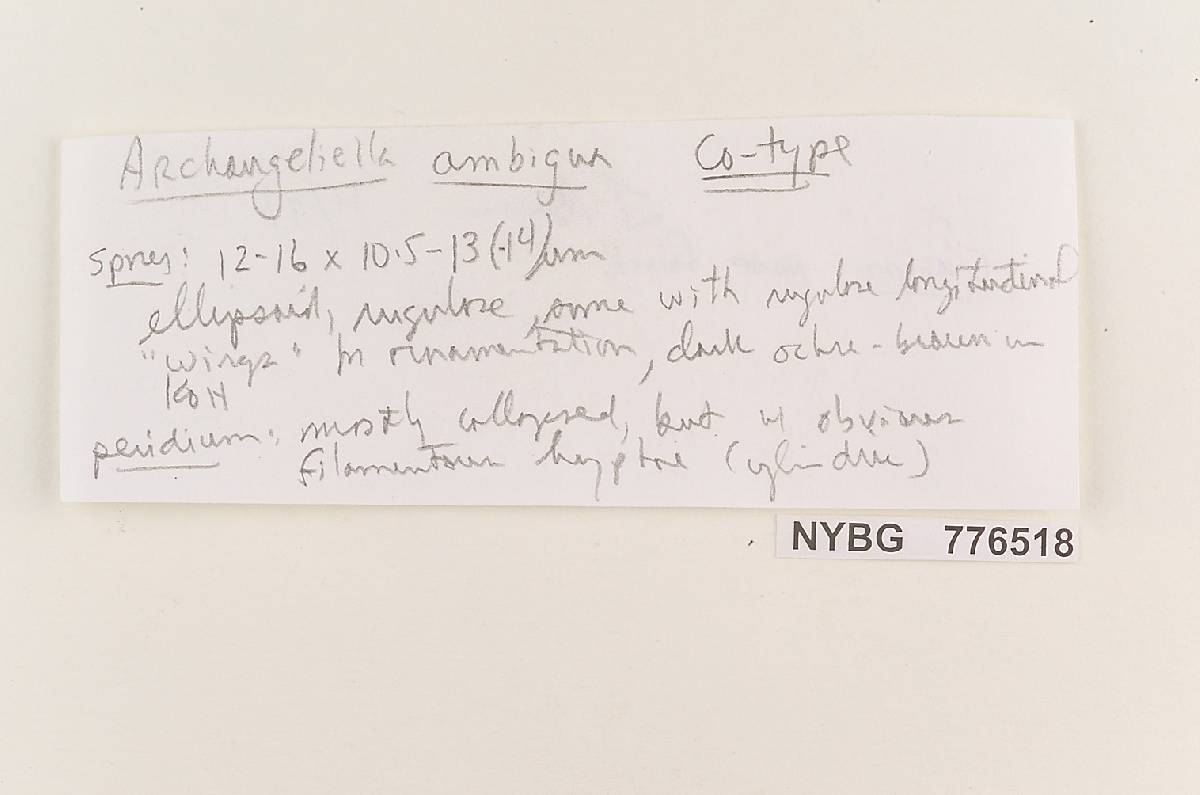 Archangeliella ambigua Co-type
spores: 12-16 x 10.5-13(-14) µm
ellipsoid, rugulose, some with rugulose longitudinal
"wings" in ornamentation, dark ochre-brown in
KOH
peridium: mostly collapsed, but w obvious
filamentous hyphae (cylindric)
NYBG 776518